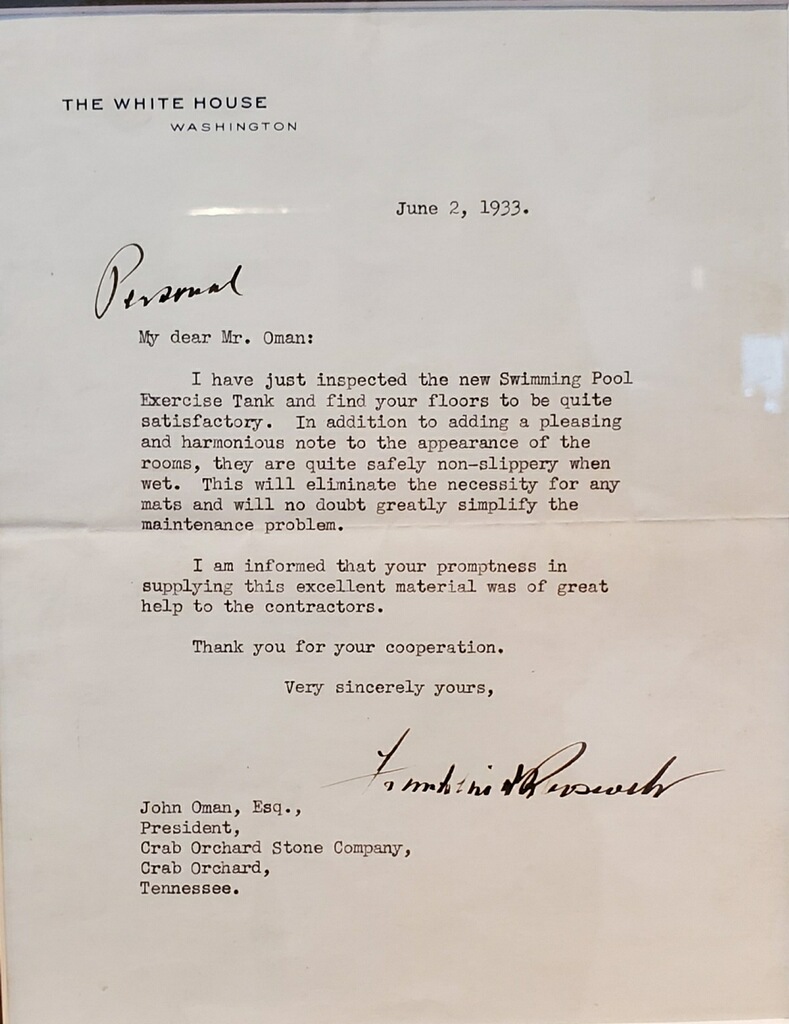 THE WHITE HOUSE
WASHINGTON
June 2, 1933.
Personal
My dear Mr. Oman:
I have just inspected the new Swimming Pool
Exercise Tank and find your floors to be quite
satisfactory. In addition to adding a pleasing
and harmonious note to the appearance of the
rooms, they are quite safely non-slippery when
wet. This will eliminate the necessity for any
mats and will no doubt greatly simplify the
maintenance problem.
I am informed that your promptness in
supplying this excellent material was of great
help to the contractors.
Thank you for your cooperation.
Very sincerely yours,
Franklin D Roosevelt
John Oman, Esq.,
President,
Crab Orchard Stone Company,
Crab Orchard,
Tennessee.